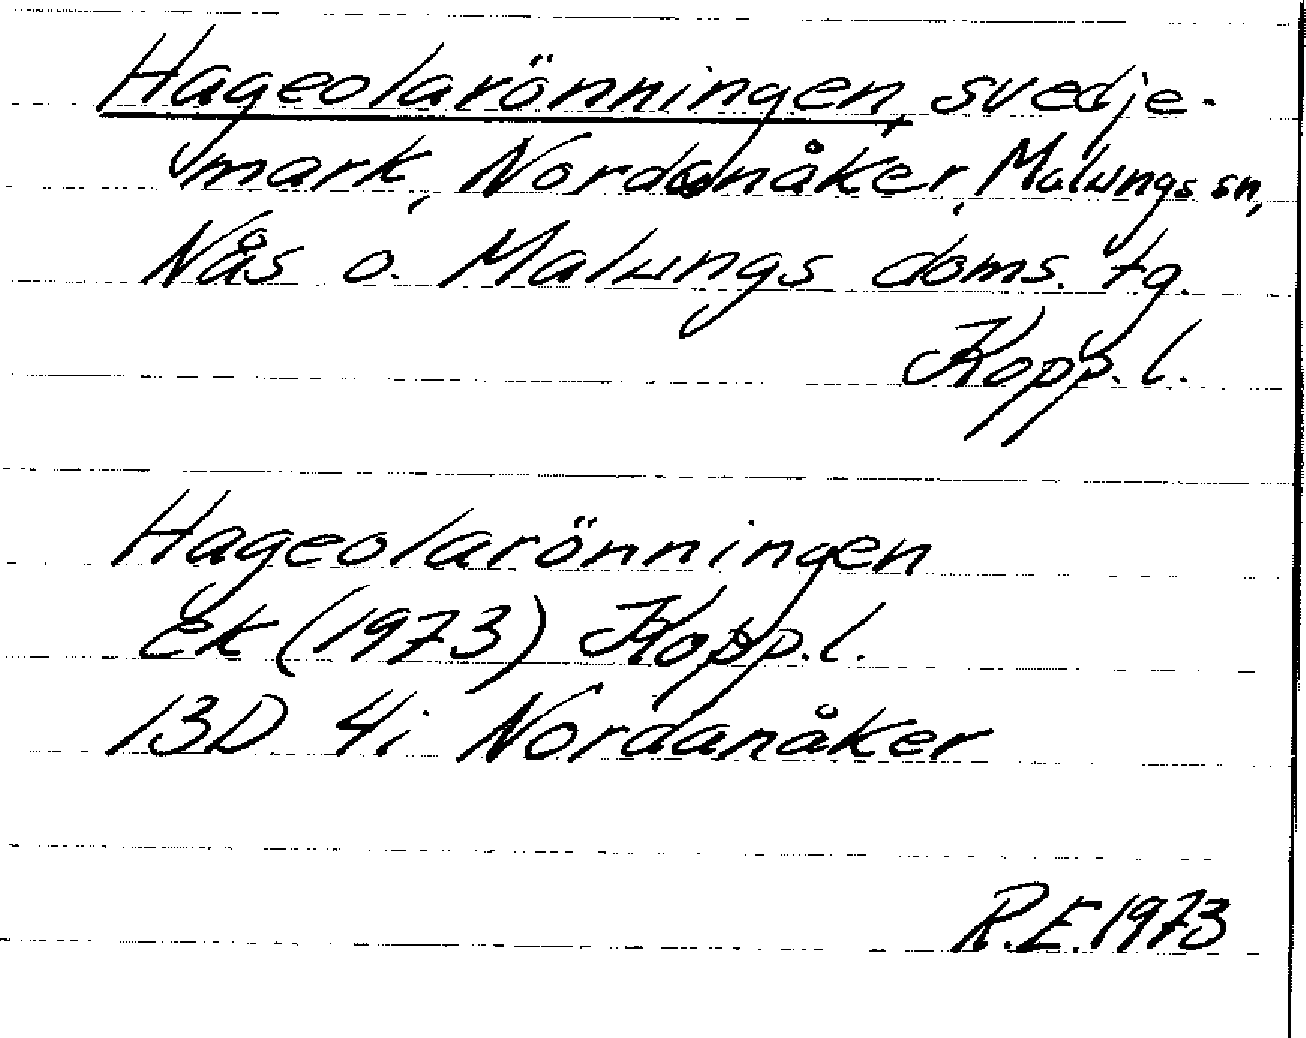 Hageolarönningen, svedje-
mark, Nordanåker, Malungs sn,
Nås o. Malungs doms. tg.
Kopp. l.
Hageolarönningen
Ek (1973) Kopp. l.
13D 4i Nordanåker
R.E. 1973